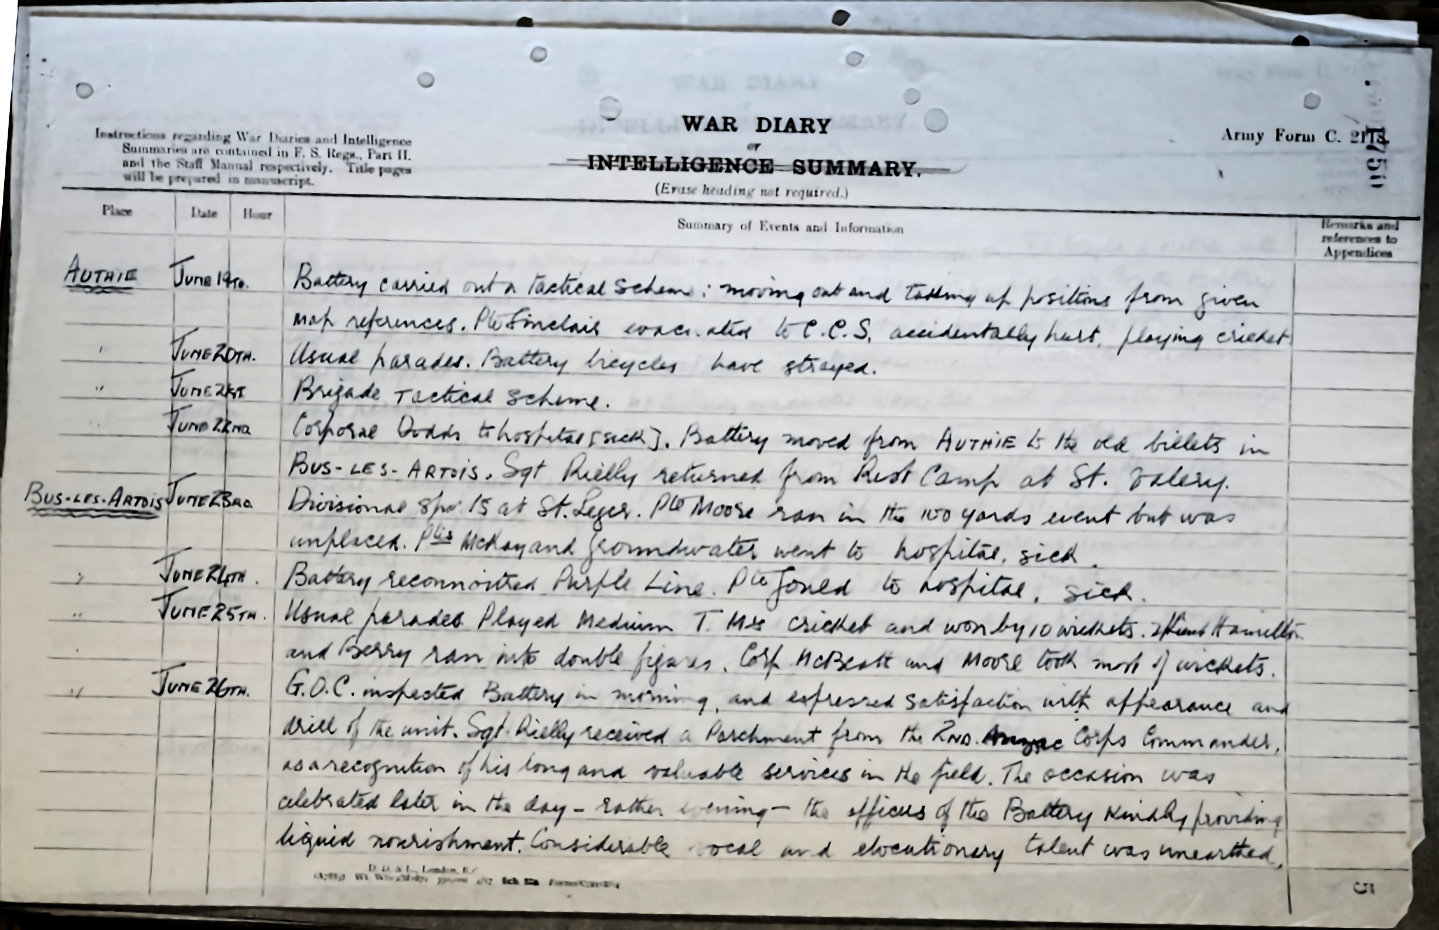 WAR DIARY
or
INTELLIGENCE SUMMARY.
(Erase heading not required.)
Army Form C. 2118.
Instructions regarding War Diaries and Intelligence
Summaries are contained in F. S. Regs., Part II.
and the Staff Manual respectively. Title pages
will be prepared in manuscript.
Place Date Hour Summary of Events and Information Remarks and references to Appendices
AUTHIE JUNE 19TH. Battery carried out a tactical scheme: moving out and taking up positions from given
map references. Pte Sinclair evacuated to C.C.S, accidentally hurt, playing cricket
" JUNE 20TH. Usual parades. Battery bicycles have strayed.
" JUNE 21ST Brigade Tactical Scheme.
JUNE 22ND Corporal Dodds to hospital [sick]. Battery moved from AUTHIE to the old billets in
BUS-LES-ARTOIS. Sgt Rielly returned from Rest Camp at St. Valery.
BUS-LES-ARTOIS JUNE 23RD. Divisional at St. Leger. Pte Moore ran in the 100 yards event but was
unplaced. Ptes McKay and Groundwater went to hospital, sick.
" JUNE 24TH. Battery reconnoitred Purple Line. Pte to hospital, sick.
" JUNE 25TH. Usual parades Played Medium T. Ms cricket and won by 10 wickets. Hamilton
and Berry ran into double figures. Corp. McBeath and Moore took most of wickets.
" JUNE 26TH. G.O.C. inspected Battery in morning, and expressed satisfaction with appearance and
drill of the unit. Sgt. Rielly received a Parchment from the 2ND. Anzac Corps Commander,
as a recognition of his long and valuable services in the field. The occasion was
celebrated later in the day – rather evening – the officers of the Battery kindly providing
liquid nourishment. Considerable vocal and elocutionary talent was unearthed.
D. D. & L., London, E.C.
5